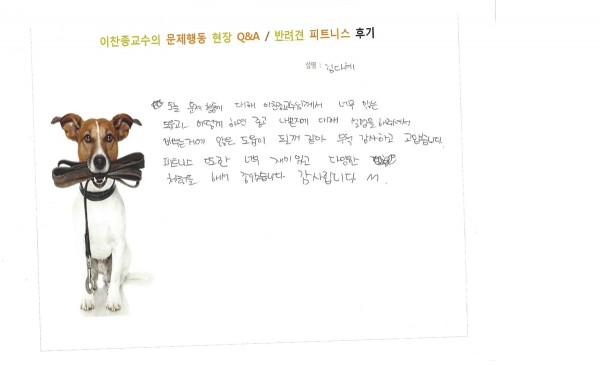 이찬종교수의 문제행동 현장 Q&A / 반려견 피트니스 후기
성명 : 김다혜
오늘 문제 행동에 대해 이찬종교수님께서 너무 있는
모습과 어떻게 하면 좋고 나쁜지에 대해 설명을 해주셔서
많은 도움이 될꺼 같아 무척 감사하고 고맙습니다.
피트니스 또한 너무 재미있고 다양한
체험을 해서 좋았습니다 감사합니다 ^^.